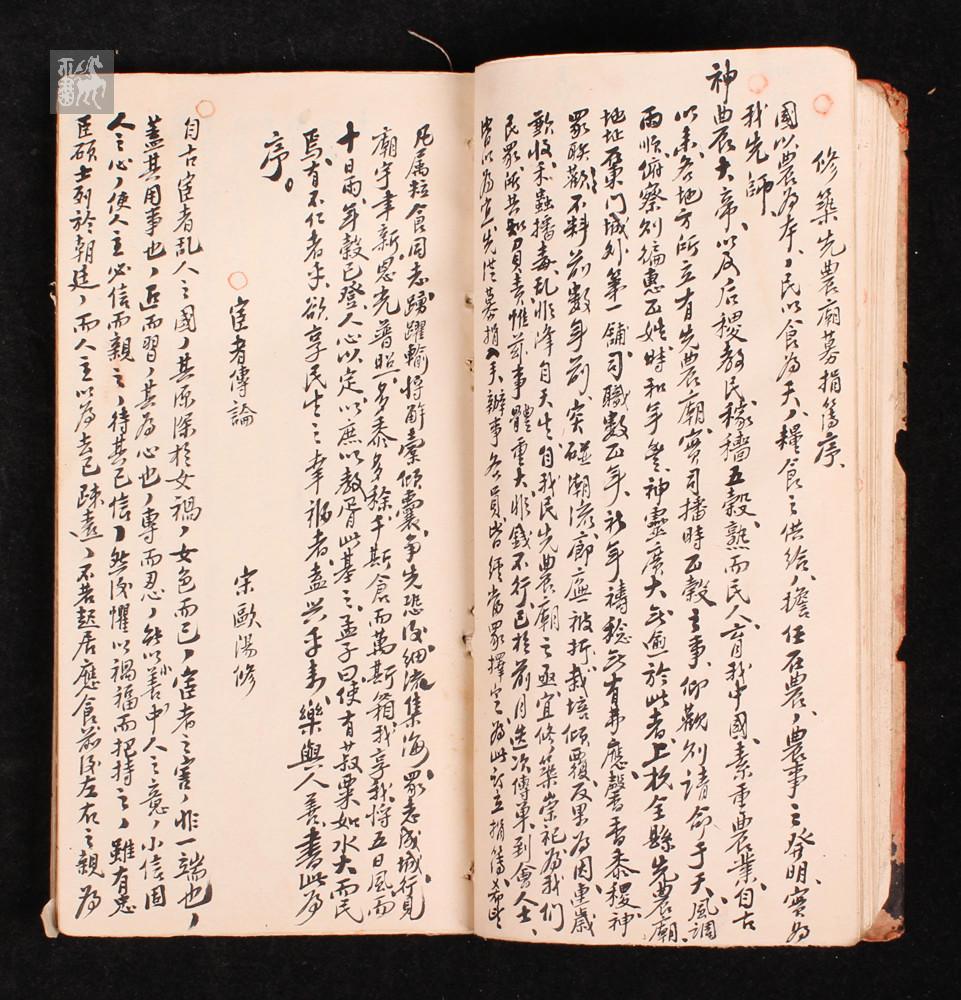 修築先農廟募捐簿序、
國以農為本、民以食為天、糧食之供給、擔任在農、農事之發明、實為
我先師
神農大帝、以及后稷教民稼穡五穀熟而民人育我中國素重農業、自古
以来各地方所立有先農廟、實司播時百穀主事、仰觀則請命于天、風調
雨順、俯察則徧惠百姓、時和年豐、神靈廣大、無逾於此者、上杭全縣先農廟、
地址在東門城外第一舖、司職數百年、祈年禱稔、無有弗應、馨香黍稷、神
眾联歡、不料前數年前、突碰潮溢、廊廡被折、栽培傾覆、反果為因、連歲
歉收、禾蟲播毒、乱非降自天、生自我民、先農廟之亟宜修築崇祀、為我们
民眾所共知、負責惟茲事體重大、非錢不行、已於前月迭次傳單、到會人士、
皆以為宜先從募捐入手、辦事各員皆經當眾擇定、為此訂立捐簿、希望
凡属粒食同志、踴躍輸將、解橐傾囊、爭先恐後、細流集海、眾志成城、行見
廟宇聿新、恩光普照、多黍多稌、千斯倉而萬斯箱、我享我將、五日風而
十日雨、年穀已登、人心以定、以庶以教、胥此基之、孟子曰、使有菽粟如水火、而民
焉有不仁者乎、欲享民生之幸福者、盍兴乎来、樂與人善、書此為
序。
宦者傳論
宋歐陽修
自古宦者乱人之國、其源深於女禍、女色而已、宦者之害、非一端也、
蓋其用事也、近而習、其為心也、專而忍、能以小善中人之意、小信固
人之心、使人主必信而親之、待其已信、然後懼以禍福而把持之、雖有忠
臣碩士列於朝廷、而人主以為去己疎遠、不若起居飲食前後左右之親為